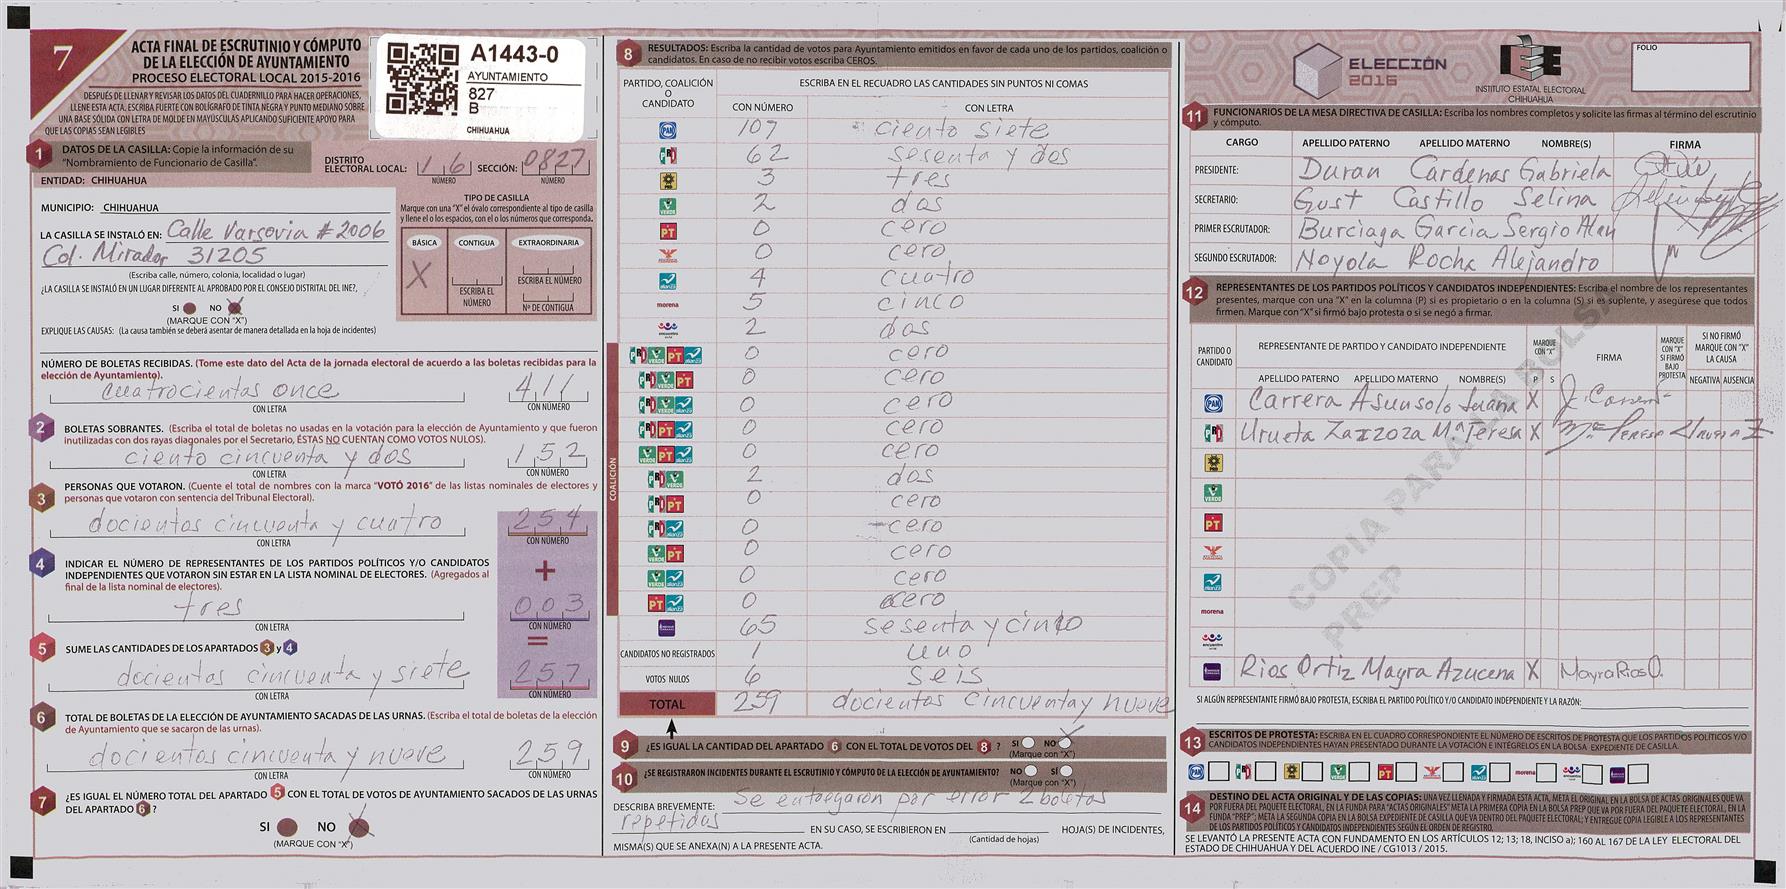 7
ACTA FINAL DE ESCRUTINIO Y CÓMPUTO
DE LA ELECCIÓN DE AYUNTAMIENTO
PROCESO ELECTORAL LOCAL 2015-2016
DESPUÉS DE LLENAR Y REVISAR LOS DATOS DEL CUADERNILLO PARA HACER OPERACIONES,
LLENE ESTA ACTA. ESCRIBA FUERTE CON BOLÍGRAFO DE TINTA NEGRA Y PUNTO MEDIANO SOBRE
UNA BASE SÓLIDA CON LETRA DE MOLDE EN MAYÚSCULAS APLICANDO SUFICIENTE APOYO PARA
QUE LAS COPIAS SEAN LEGIBLES
A1443-0
AYUNTAMIENTO
827
B
CHIHUAHUA
1 DATOS DE LA CASILLA: Copie la información de su
"Nombramiento de Funcionario de Casilla".
DISTRITO ELECTORAL LOCAL: 16 SECCIÓN: 0827
NÚMERO NÚMERO
ENTIDAD: CHIHUAHUA
MUNICIPIO: CHIHUAHUA
LA CASILLA SE INSTALÓ EN: Calle Varsovia # 2006
Col. Mirador 31205
(Escriba calle, número, colonia, localidad o lugar)
¿LA CASILLA SE INSTALÓ EN UN LUGAR DIFERENTE AL APROBADO POR EL CONSEJO DISTRITAL DEL INE?,
SI NO X
(MARQUE CON "X")
EXPLIQUE LAS CAUSAS: (La causa también se deberá asentar de manera detallada en la hoja de incidentes)
TIPO DE CASILLA
Marque con una "X" el óvalo correspondiente al tipo de casilla
y llene el o los espacios, con el o los números que corresponda.
BÁSICA CONTIGUA EXTRAORDINARIA
X
ESCRIBA EL NÚMERO ESCRIBA EL NÚMERO
Nº DE CONTIGUA
NÚMERO DE BOLETAS RECIBIDAS. (Tome este dato del Acta de la jornada electoral de acuerdo a las boletas recibidas para la
elección de Ayuntamiento).
cuatrocientos once 411
CON LETRA CON NÚMERO
2 BOLETAS SOBRANTES. (Escriba el total de boletas no usadas en la votación para la elección de Ayuntamiento y que fueron
inutilizadas con dos rayas diagonales por el Secretario, ÉSTAS NO CUENTAN COMO VOTOS NULOS).
ciento cincuenta y dos 152
CON LETRA CON NÚMERO
3 PERSONAS QUE VOTARON. (Cuente el total de nombres con la marca "VOTÓ 2016" de las listas nominales de electores y
personas que votaron con sentencia del Tribunal Electoral).
docientos cincuenta y cuatro 254
CON LETRA CON NÚMERO
+
4 INDICAR EL NÚMERO DE REPRESENTANTES DE LOS PARTIDOS POLÍTICOS Y/O CANDIDATOS
INDEPENDIENTES QUE VOTARON SIN ESTAR EN LA LISTA NOMINAL DE ELECTORES. (Agregados al
final de la lista nominal de electores).
tres 003
CON LETRA CON NÚMERO
=
5 SUME LAS CANTIDADES DE LOS APARTADOS 3 y 4
docientos cincuenta y siete 257
CON LETRA CON NÚMERO
6 TOTAL DE BOLETAS DE LA ELECCIÓN DE AYUNTAMIENTO SACADAS DE LAS URNAS. (Escriba el total de boletas de la elección
de Ayuntamiento que se sacaron de las urnas).
docientos cincuenta y nueve 259
CON LETRA CON NÚMERO
7 ¿ES IGUAL EL NÚMERO TOTAL DEL APARTADO 5 CON EL TOTAL DE VOTOS DE AYUNTAMIENTO SACADOS DE LAS URNAS
DEL APARTADO 6?
SI NO X
(MARQUE CON "X")
8 RESULTADOS: Escriba la cantidad de votos para Ayuntamiento emitidos en favor de cada uno de los partidos, coalición o
candidatos. En caso de no recibir votos escriba CEROS.
PARTIDO, COALICIÓN O CANDIDATO
ESCRIBA EN EL RECUADRO LAS CANTIDADES SIN PUNTOS NI COMAS
CON NÚMERO CON LETRA
PAN 107 ciento siete
PRI 62 sesenta y dos
PRD 3 tres
VERDE 2 dos
PT 0 cero
0 cero
alianza 4 cuatro
morena 5 cinco
encuentro 2 dos
COALICIÓN
PRI VERDE PT alianza 0 cero
PRI VERDE PT 0 cero
PRI VERDE alianza 0 cero
PRI PT alianza 0 cero
VERDE PT alianza 0 cero
PRI VERDE 2 dos
PRI PT 0 cero
PRI alianza 0 cero
VERDE PT 0 cero
VERDE alianza 0 cero
PT alianza 0 cero
65 sesenta y cinco
CANDIDATOS NO REGISTRADOS 1 uno
VOTOS NULOS 6 seis
TOTAL 259 docientos cincuenta y nueve
9 ¿ES IGUAL LA CANTIDAD DEL APARTADO 6 CON EL TOTAL DE VOTOS DEL 8? SI NO X
(Marque con "X")
10 ¿SE REGISTRARON INCIDENTES DURANTE EL ESCRUTINIO Y CÓMPUTO DE LA ELECCIÓN DE AYUNTAMIENTO? NO SÍ
(Marque con "X")
DESCRIBA BREVEMENTE: Se entregaron por error 2 boletas
repetidas EN SU CASO, SE ESCRIBIERON EN HOJA(S) DE INCIDENTES,
(Cantidad de hojas)
MISMA(S) QUE SE ANEXA(N) A LA PRESENTE ACTA.
ELECCIÓN
2016
IEE
INSTITUTO ESTATAL ELECTORAL
CHIHUAHUA
FOLIO
11 FUNCIONARIOS DE LA MESA DIRECTIVA DE CASILLA: Escriba los nombres completos y solicite las firmas al término del escrutinio
y cómputo.
CARGO APELLIDO PATERNO APELLIDO MATERNO NOMBRE(S) FIRMA
PRESIDENTE: Duran Cardenas Gabriela
SECRETARIO: Gust Castillo Selina
PRIMER ESCRUTADOR: Burciaga Garcia Sergio Alan
SEGUNDO ESCRUTADOR: Noyola Rocha Alejandro
12 REPRESENTANTES DE LOS PARTIDOS POLÍTICOS Y CANDIDATOS INDEPENDIENTES: Escriba el nombre de los representantes
presentes, marque con una "X" en la columna (P) si es propietario o en la columna (S) si es suplente, y asegúrese que todos
firmen. Marque con "X" si firmó bajo protesta o si se negó a firmar.
PARTIDO O CANDIDATO
REPRESENTANTE DE PARTIDO Y CANDIDATO INDEPENDIENTE
MARQUE CON "X"
FIRMA
MARQUE CON "X" SI FIRMÓ BAJO PROTESTA
SI NO FIRMÓ MARQUE CON "X" LA CAUSA
APELLIDO PATERNO APELLIDO MATERNO NOMBRE(S) P S NEGATIVA AUSENCIA
PAN Carrera Asunsolo Juana X
PRI Urueta Zazzoza Mª Teresa X Mª Teresa Urueta Z
PRD
VERDE
PT
alianza
morena
encuentro
Rios Ortiz Mayra Azucena X Mayra Rios O.
COPIA PARA LA BOLSA
PREP
SI ALGÚN REPRESENTANTE FIRMÓ BAJO PROTESTA, ESCRIBA EL PARTIDO POLÍTICO Y/O CANDIDATO INDEPENDIENTE Y LA RAZÓN:
13 ESCRITOS DE PROTESTA: ESCRIBA EN EL CUADRO CORRESPONDIENTE EL NÚMERO DE ESCRITOS DE PROTESTA QUE LOS PARTIDOS POLÍTICOS Y/O
CANDIDATOS INDEPENDIENTES HAYAN PRESENTADO DURANTE LA VOTACIÓN E INTÉGRELOS EN LA BOLSA EXPEDIENTE DE CASILLA.
PAN PRI PRD VERDE PT alianza morena encuentro
14 DESTINO DEL ACTA ORIGINAL Y DE LAS COPIAS: UNA VEZ LLENADA Y FIRMADA ESTA ACTA, META EL ORIGINAL EN LA BOLSA DE ACTAS ORIGINALES QUE VA
POR FUERA DEL PAQUETE ELECTORAL, EN LA FUNDA PARA "ACTAS ORIGINALES" META LA PRIMERA COPIA EN LA BOLSA PREP QUE VA POR FUERA DEL PAQUETE ELECTORAL, EN LA
FUNDA "PREP"; META LA SEGUNDA COPIA EN LA BOLSA EXPEDIENTE DE CASILLA QUE VA DENTRO DEL PAQUETE ELECTORAL; Y ENTREGUE COPIA LEGIBLE A LOS REPRESENTANTES
DE LOS PARTIDOS POLÍTICOS Y CANDIDATOS INDEPENDIENTES SEGÚN EL ORDEN DE REGISTRO.
SE LEVANTÓ LA PRESENTE ACTA CON FUNDAMENTO EN LOS ARTÍCULOS 12; 13; 18, INCISO a); 160 AL 167 DE LA LEY ELECTORAL DEL
ESTADO DE CHIHUAHUA Y DEL ACUERDO INE / CG1013 / 2015.